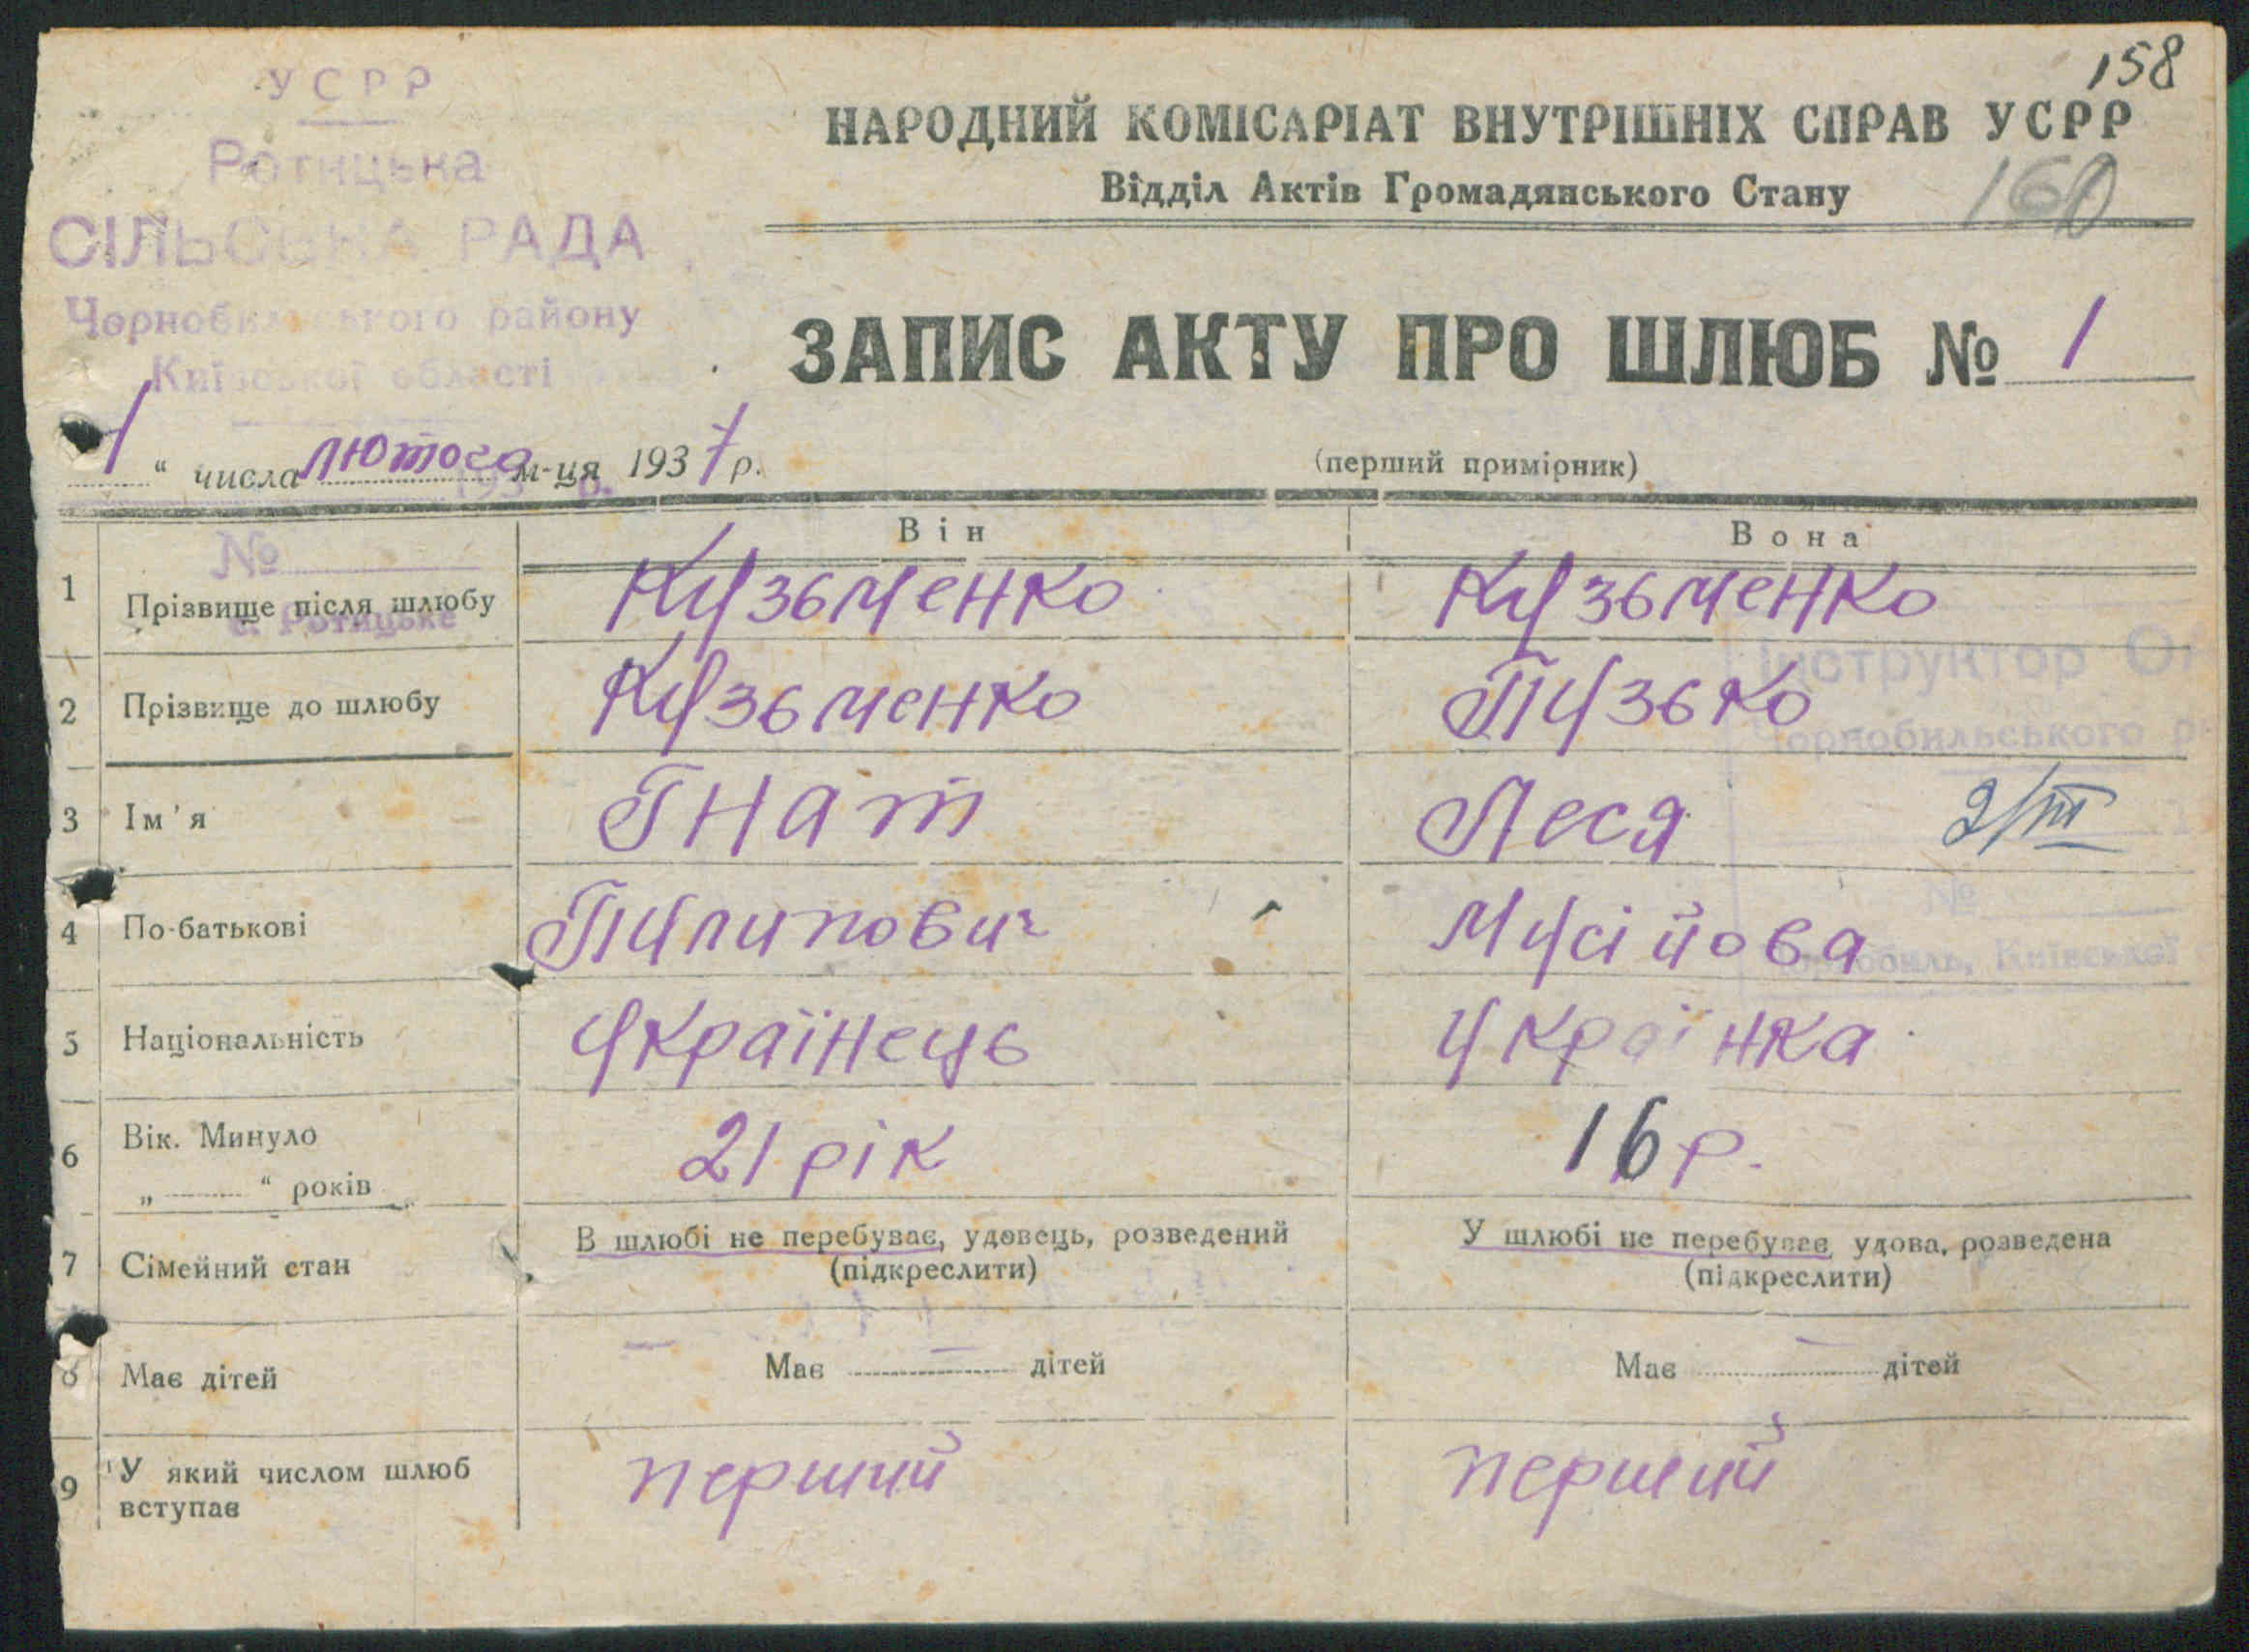 158
УСРР
Ротицька
СІЛЬСЬКА РАДА
Чорнобильського району
Київської області
НАРОДНИЙ КОМІСАРІАТ ВНУТРІШНІХ СПРАВ УСРР
Відділ Актів Громадянського Стану
160
ЗАПИС АКТУ ПРО ШЛЮБ № 1
1 " числа лютого м-ця 1937 р.
(перший примірник)
Він Вона
№
1 Прізвище після шлюбу Кузьменко Кузьменко
с. Ротицьке
Інструктор
2 Прізвище до шлюбу Кузьменко Пузько
Чорнобильського
3 Ім'я Гнат Леся 2/III
№
4 По-батькові Пилипович Мусійова
Чорнобиль, Київської
5 Національність Українець Українка
6 Вік. Минуло 21 рік 16 р.
„ “ років
7 Сімейний стан В шлюбі не перебуває, удовець, розведений У шлюбі не перебуває, удова, розведена
(підкреслити) (підкреслити)
8 Має дітей Має — дітей Має — дітей
9 У який числом шлюб вступає перший перший